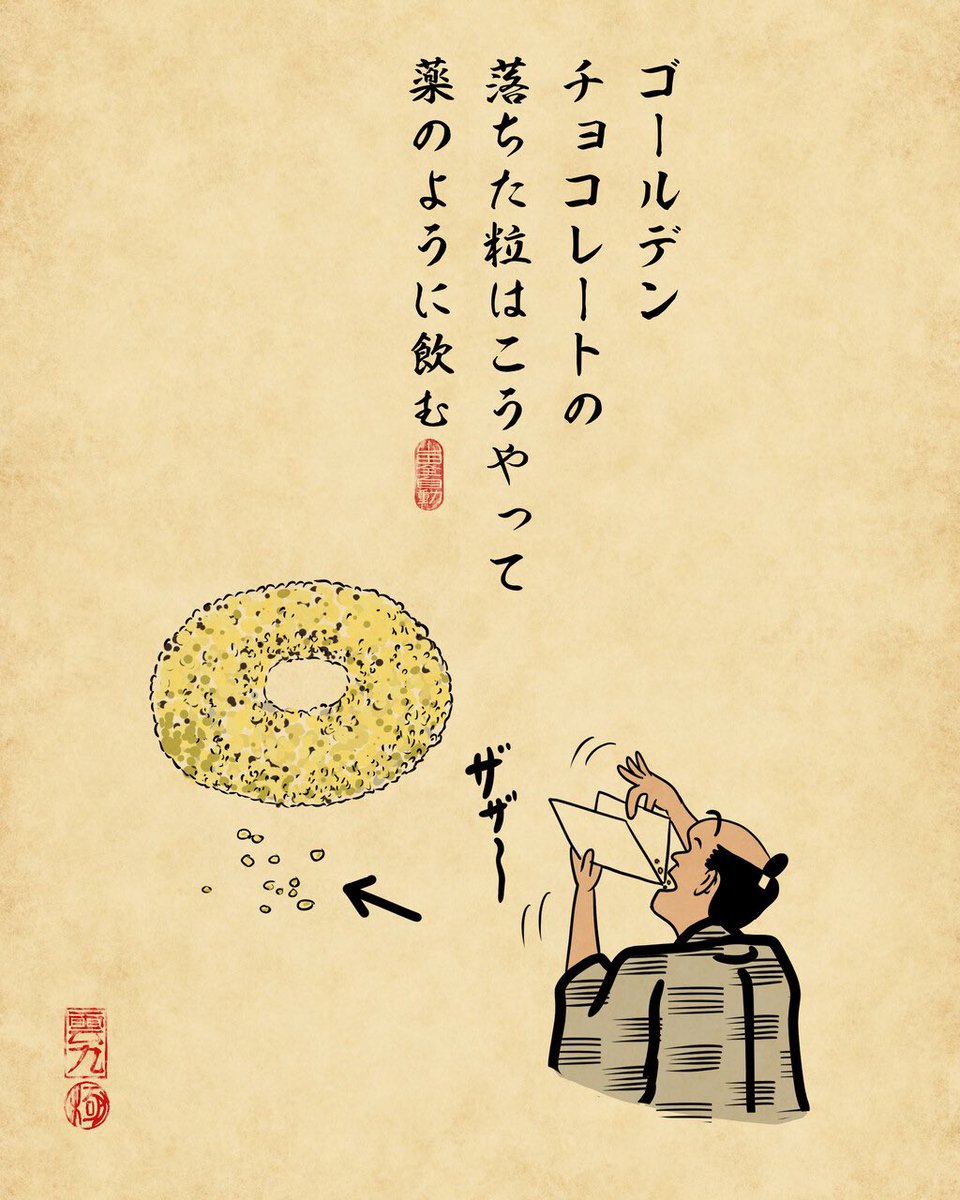 ゴールデン
チョコレートの
落ちた粒はこうやって
薬のように飲む
ザザ〜